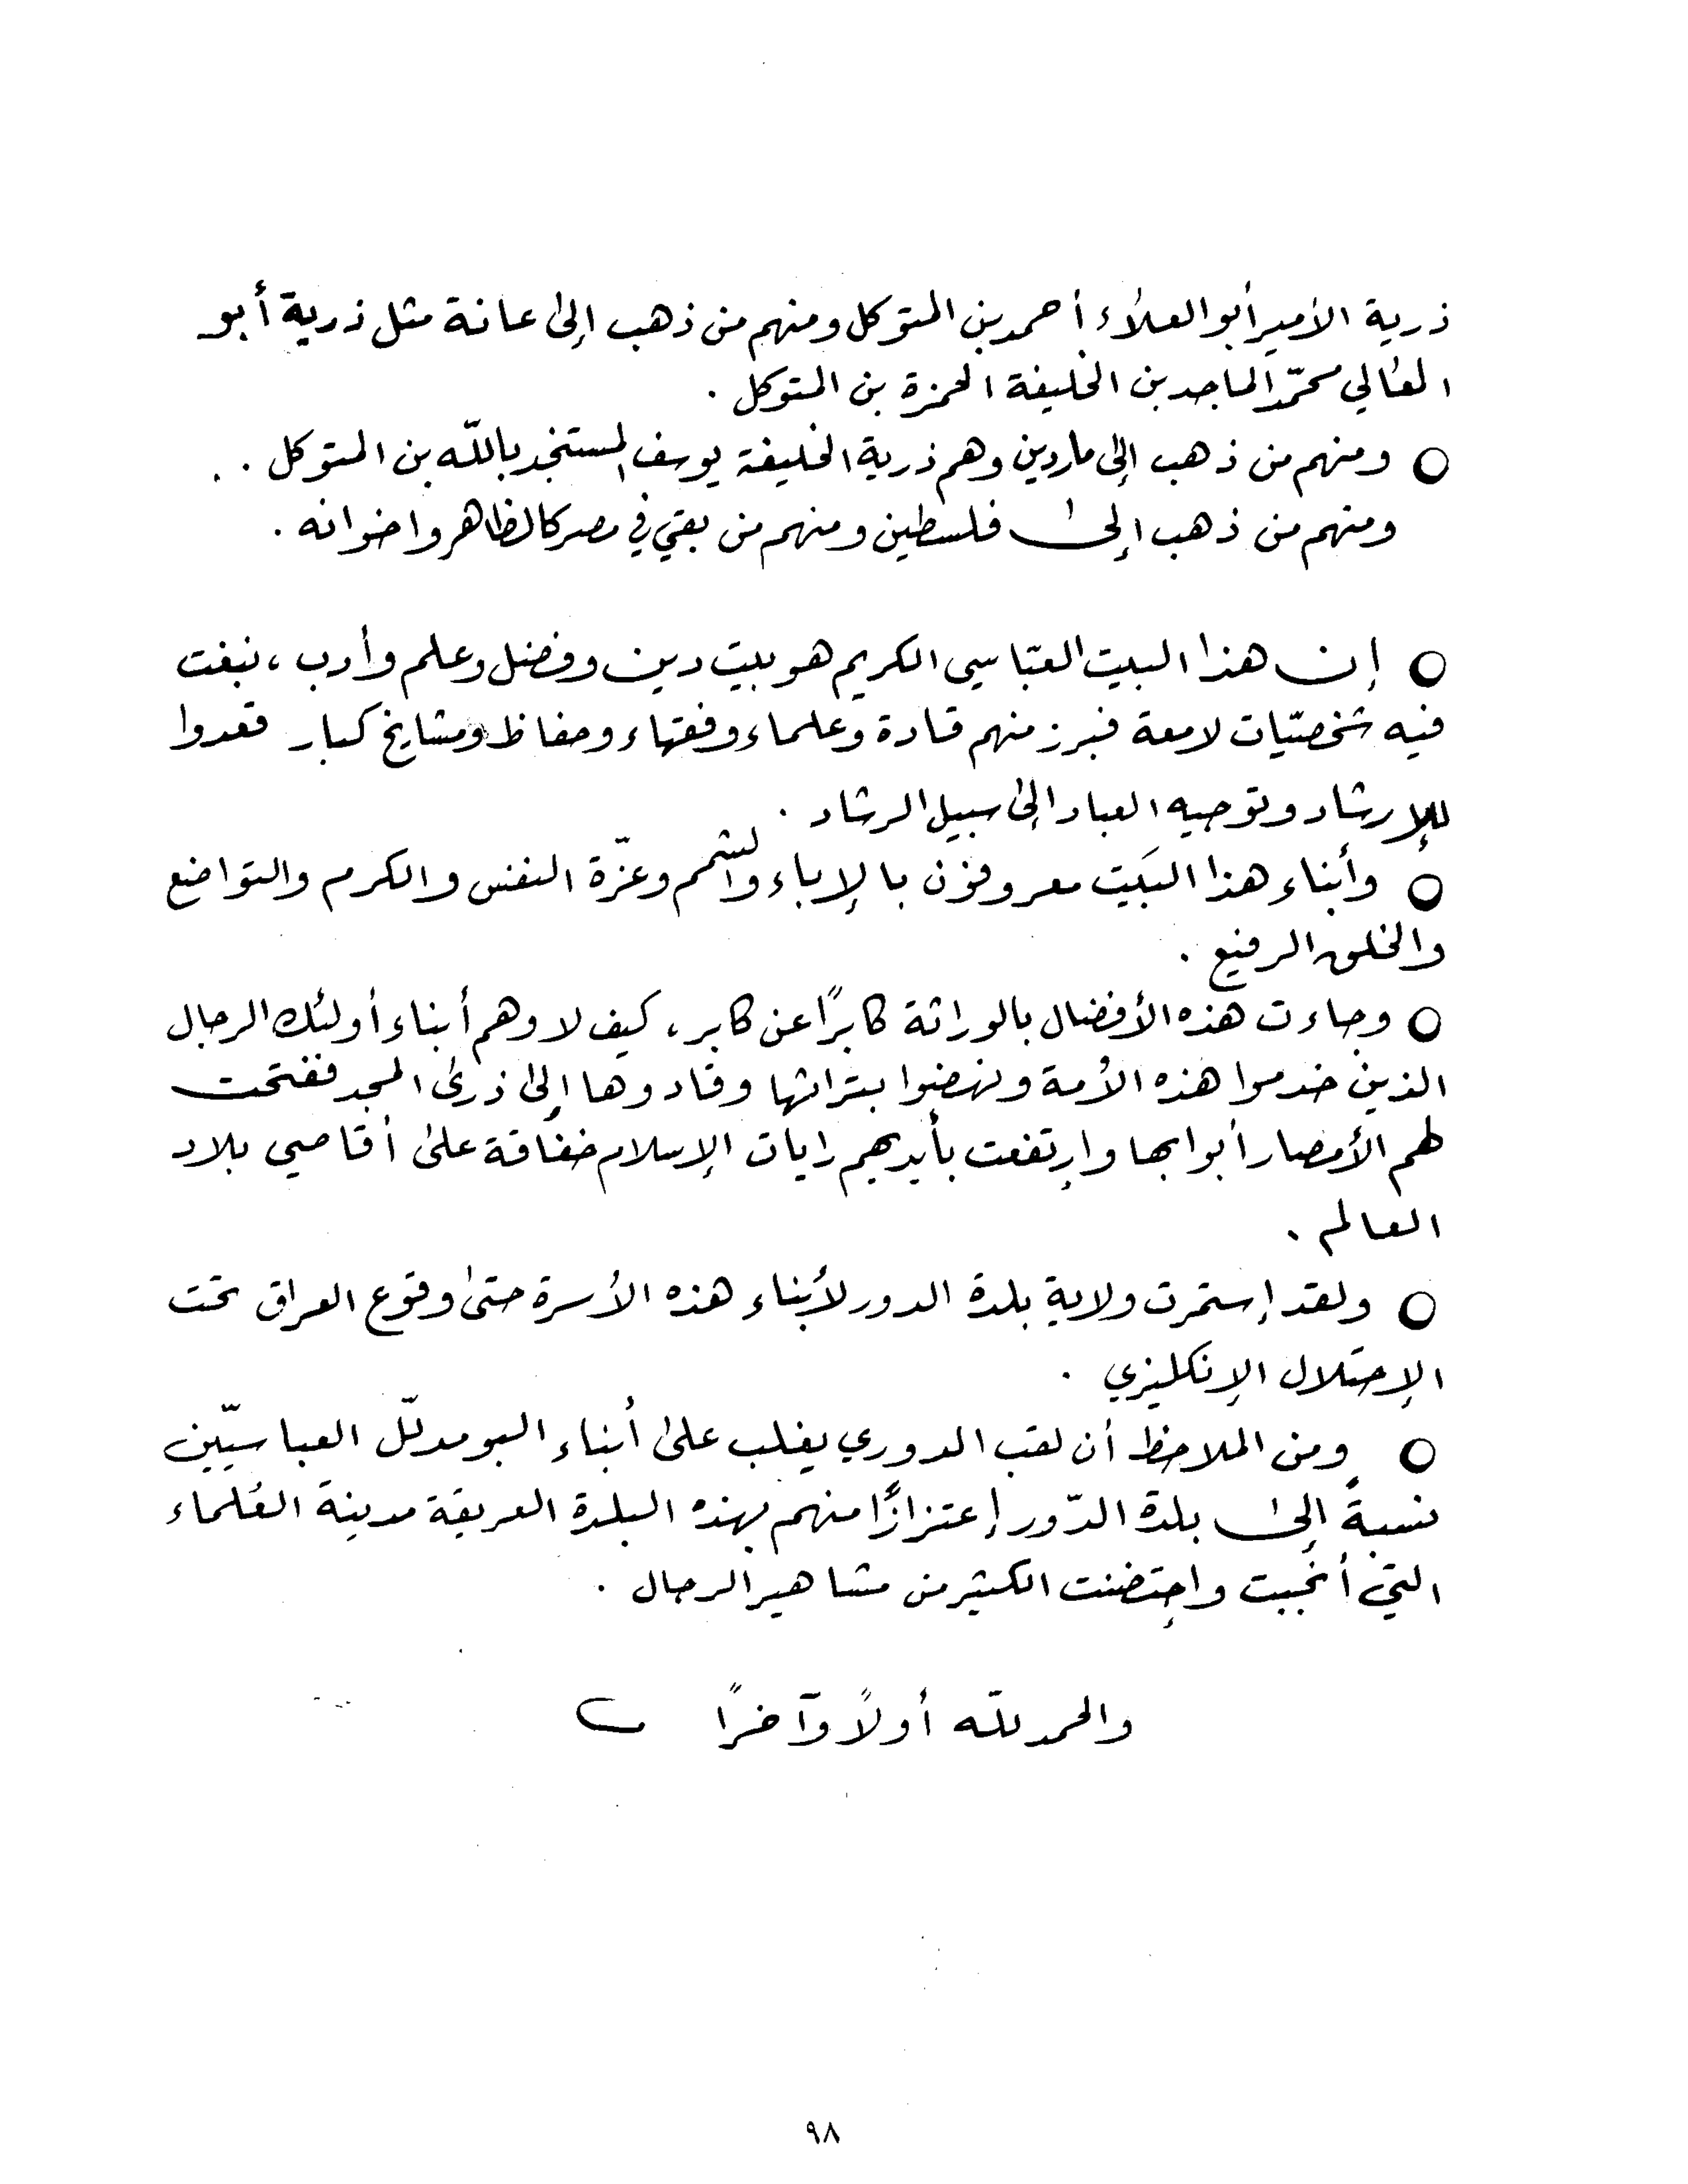 ذرية الأمير أبو العلاء أحمد بن المتوكل ومنهم من ذهب إلى عانة مثل ذرية أبو
المعالي محمّد الماجد بن الخليفة الحمزة بن المتوكل .
○ ومنهم من ذهب إلى ماردين وهم ذرية الخليفة يوسف المستنجد باللّه بن المتوكل . .
ومنهم من ذهب إلى فلسطين ومنهم من بقي في مصر كالظاهر واخوانه .
○ إن هذا البيت العبّاسي الكريم هو بيت دين وفضل وعلم وأدب ، نبغت
فيه شخصيّات لامعة فبرز منهم قادة وعلماء وفقهاء وحفاظ ومشايخ كبار قعدوا
للإرشاد وتوجيه العباد إلى سبيل الرشاد .
○ وأبناء هذا البَيت معروفون بالإباء والشمم وعزّة النفس والكرم والتواضع
والخلق الرفيع .
○ وجاءت هذه الأفضال بالوراثة كابرًا عن كابر ، كيف لا وهم أبناء أولئك الرجال
الذين خدموا هذه الأمة ونهضوا بتراثها وقادوها إلى ذرى المجد ففتحت
لهم الأمصار أبوابها وإرتفعت بأيديهم رايات الإسلام خفاقة على أقاصي بلاد
العالم .
○ ولقد إستمرت ولاية بلدة الدور لأبناء هذه الأسرة حتى وقوع العراق تحت
الإحتلال الإنكليزي .
○ ومن الملاحظ أن لقب الدوري يغلب على أبناء البو مدلّل العباسيّين
نسبةً إلى بلدة الدّور إعتزازًا منهم بهذه البلدة العريقة مدينة العُلماء
التي أنجبت وإحتضنت الكثير من مشاهير الرجال .
والحمد للّه أولًا وآخرًا
٩٨